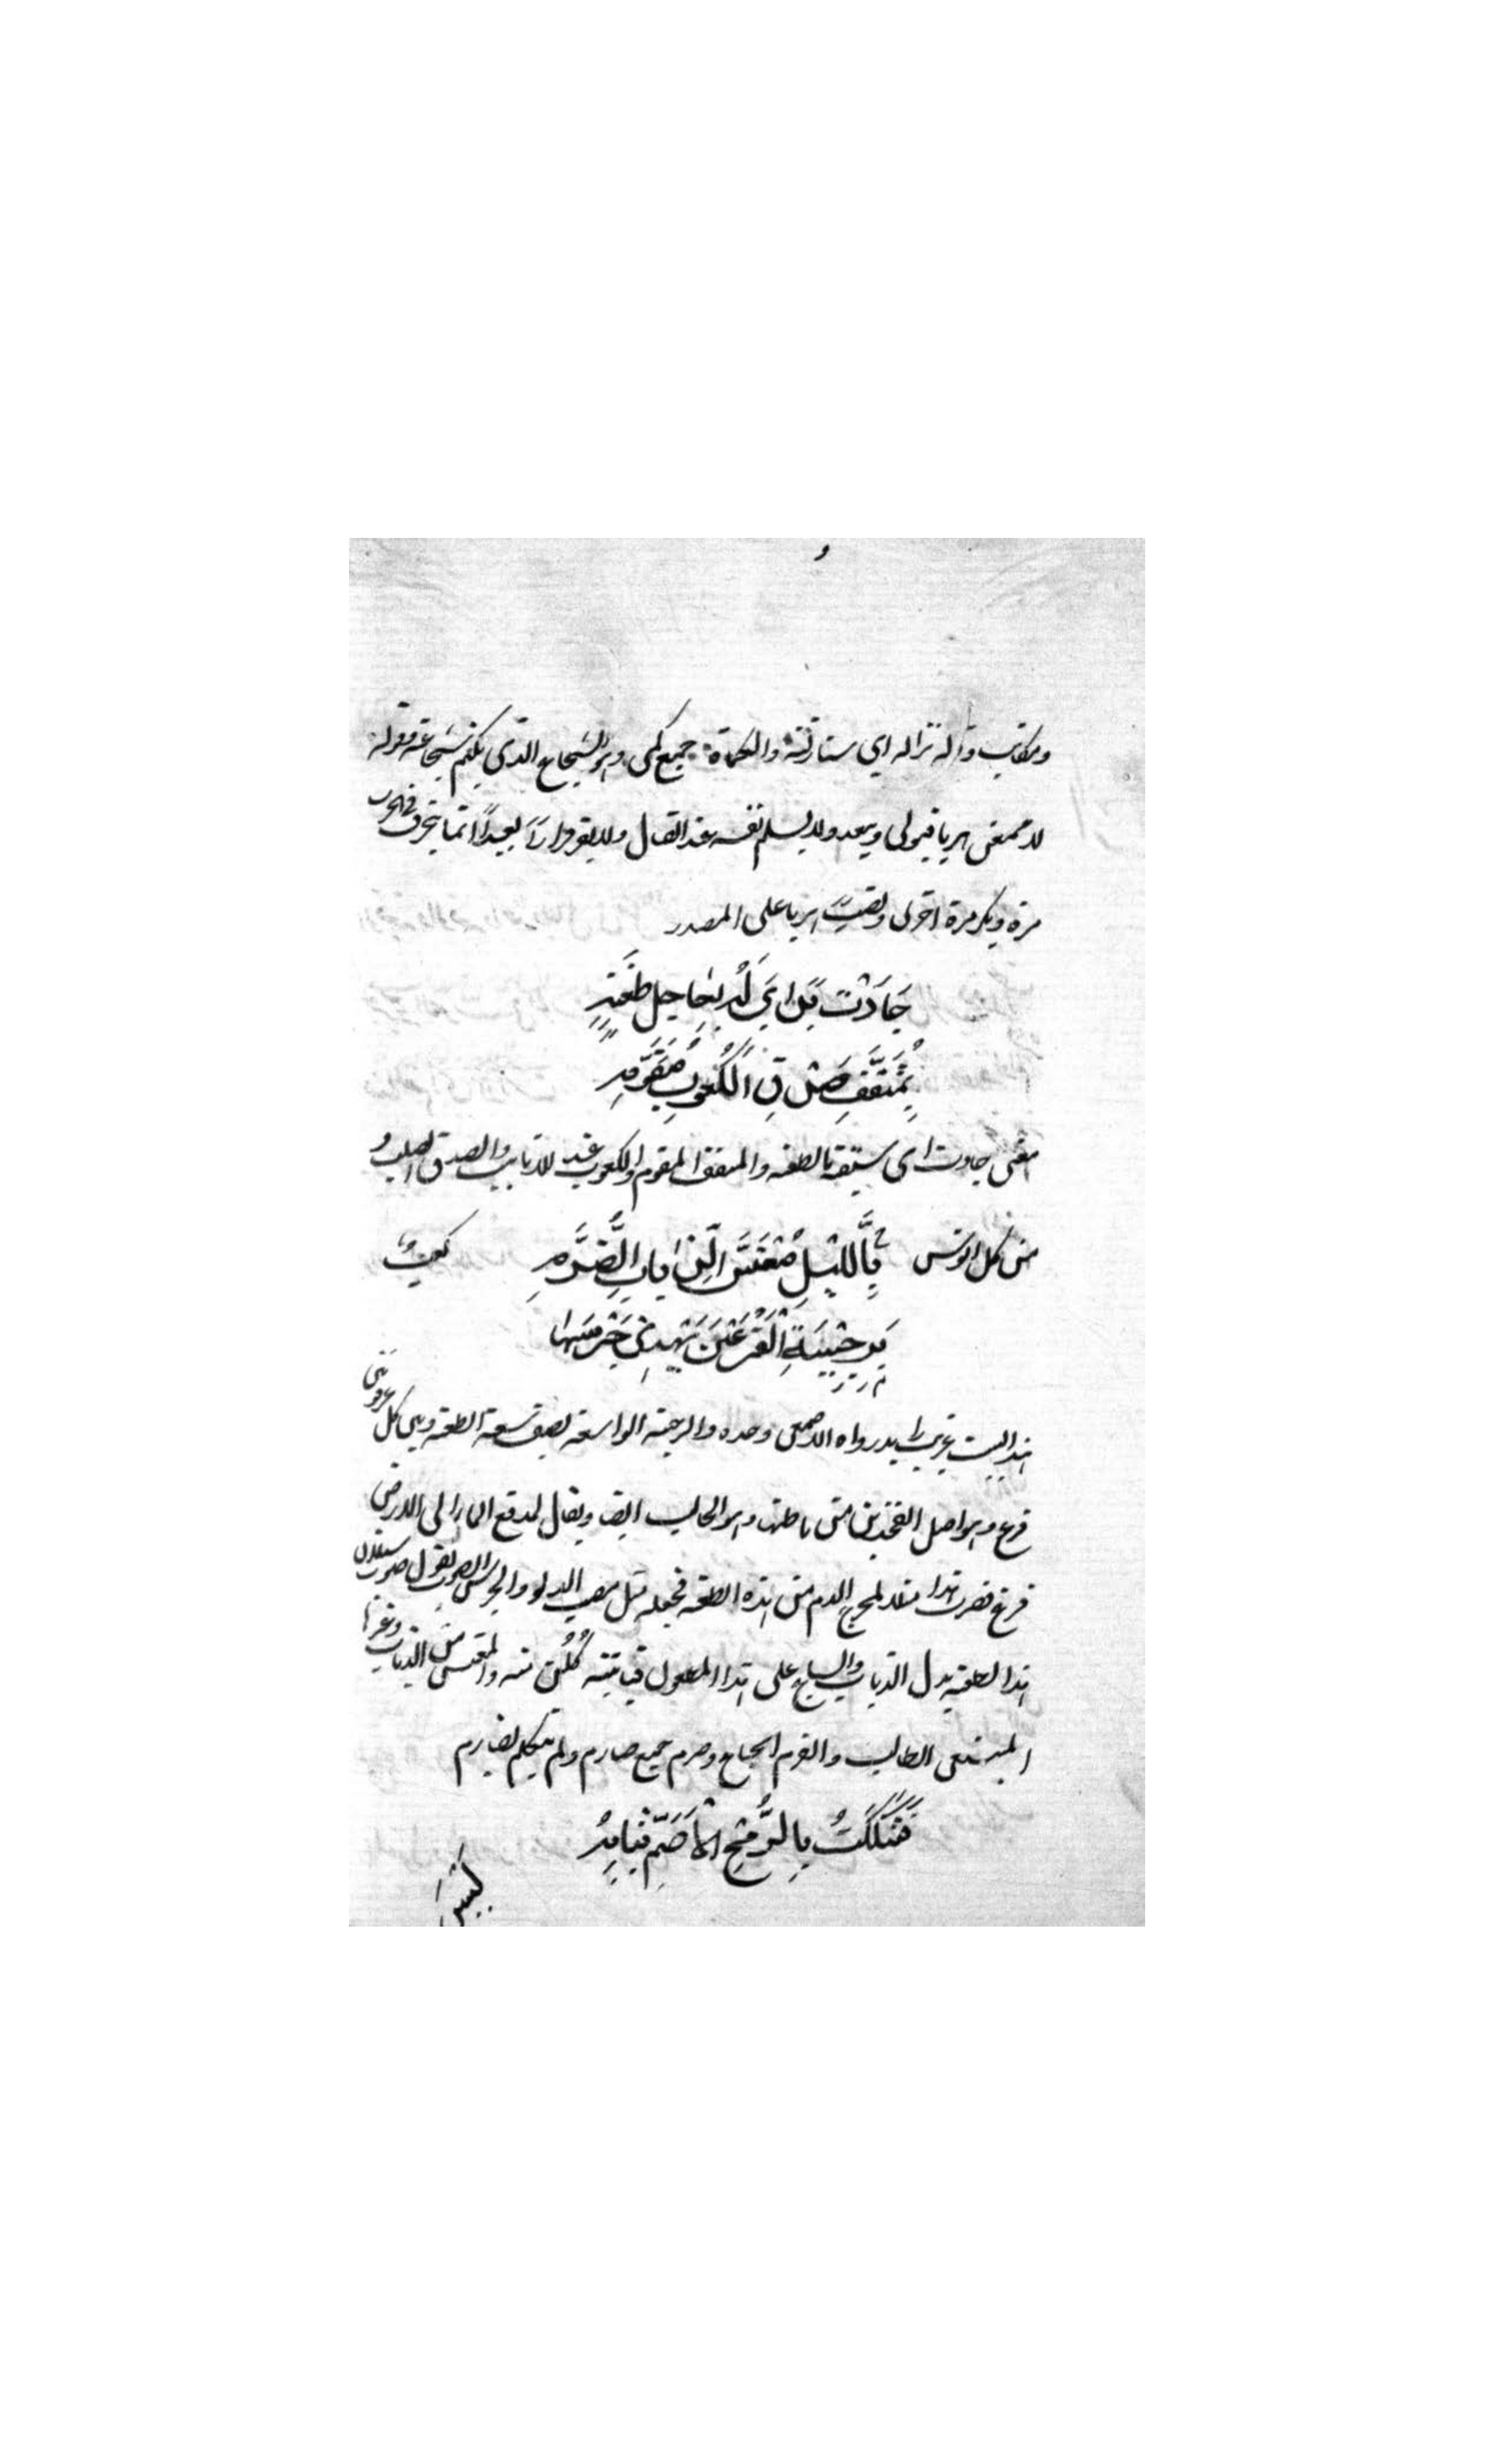 وقوله نزاله اي منازلته والكماة جمع كمى وهو الشجاع الذى يكتم شجاعته وقوله
لا ممعن هربا فيولى ويبعد ولا يستسلم نفسه عند القتال ولا يفر فرارا بعيدا انما يتحرف فى الحرب
مرة ويكر مرة اخرى ونصب هربا على المصدر
جَادَتْ يَدَايَ لَهُ بِعَاجِلِ طَعْنَةٍ
بِمُثَقَّفٍ صَدْقِ الْكُعُوبِ مُقَوَّمِ
معنى جادت اى سبقته بالطعنه والمثقف المقوم والكعوب عقد الانابيب والصدق الصلب و
من كل بِاللَّيْلِ مُعْتَسَّ الذِّئَابِ الضُّرَّمِ كعب
بِرَحِيبَةِ الْفَرْغَيْنِ يَهْدِي جَرْسُهَا
هذا البيت غريب رواه الاصمعى وحده والرحبة الواسعة يصف سعة الطعنة وهى كل
فرغ وهو اصل الفخذين من باطنها وهو الحالب ايضا ويقال لمدفع الماء الى الارض
فرغ فضرب هذا مثلا لمخرج الدم من هذه الطعنة فجعله مثل مصب الدلو والجرس الصوت يقول صوت سيلان
هذا الطعنة يدل الذياب والسباع على هذا المطعول فياتينه لياكلن منه والمعتس من الذياب وغيرها
المبتغى الطالب والضرم الجياع وضرم جمع ضارم ولم يتكلم بضارم
فَشَكَكْتُ بِالرُّمْحِ الْأَصَمِّ ثِيَابَهُ
ليس